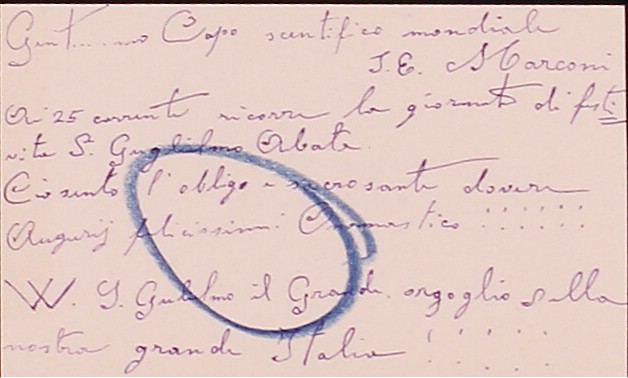 Gent......mo Capo scentifico mondiale
S. E. Marconi
Ai 25 corrente ricorre la giornata di festi=
vita S. Guglielmo Abate.
Ciò sento l'obligo e sacrosante dovere
Augurij felicissimi Onomastico ! ! ! ! ! !
W. S. Gulielmo il Grande orgoglio della
nostra grande Italia ! ! ! ! ! !